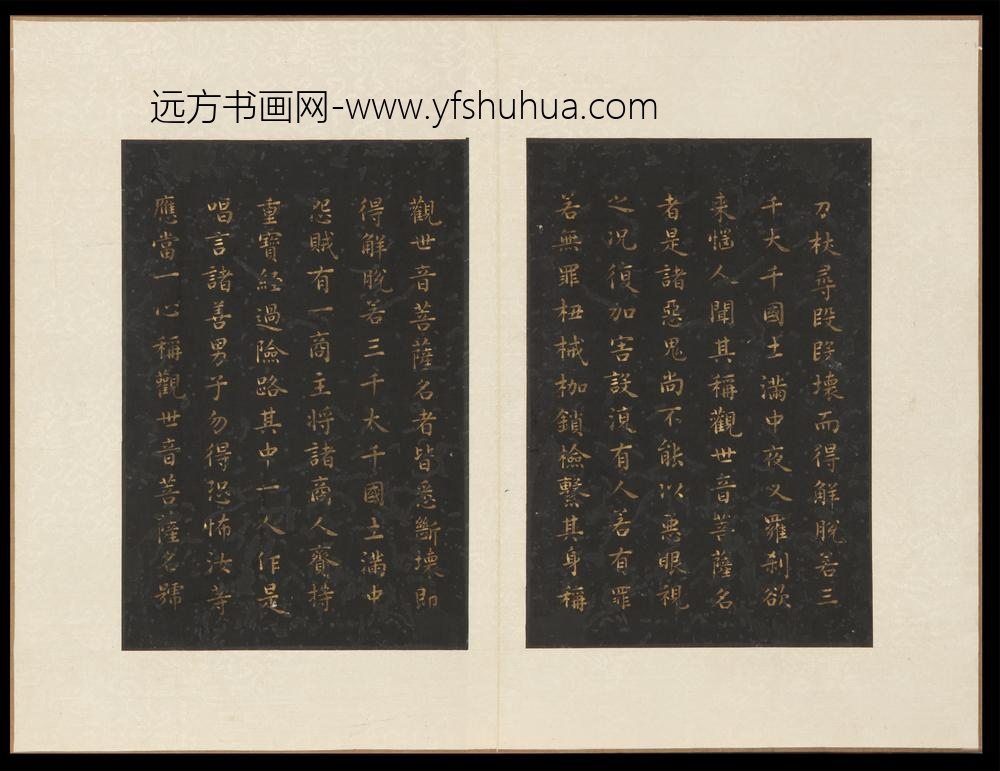 远方书画网-www.yfshuhua.com
刀杖尋段段壞而得解脫若三
千大千國土滿中夜叉羅剎欲
来惱人聞其稱觀世音菩薩名
者是諸惡鬼尚不能以惡眼視
之況復加害設復有人若有罪
若無罪杻械枷鎖檢繫其身稱
觀世音菩薩名者皆悉斷壞即
得解脫若三千大千國土滿中
怨賊有一商主將諸商人齎持
重寶經過險路其中一人作是
唱言諸善男子勿得恐怖汝等
應當一心稱觀世音菩薩名號